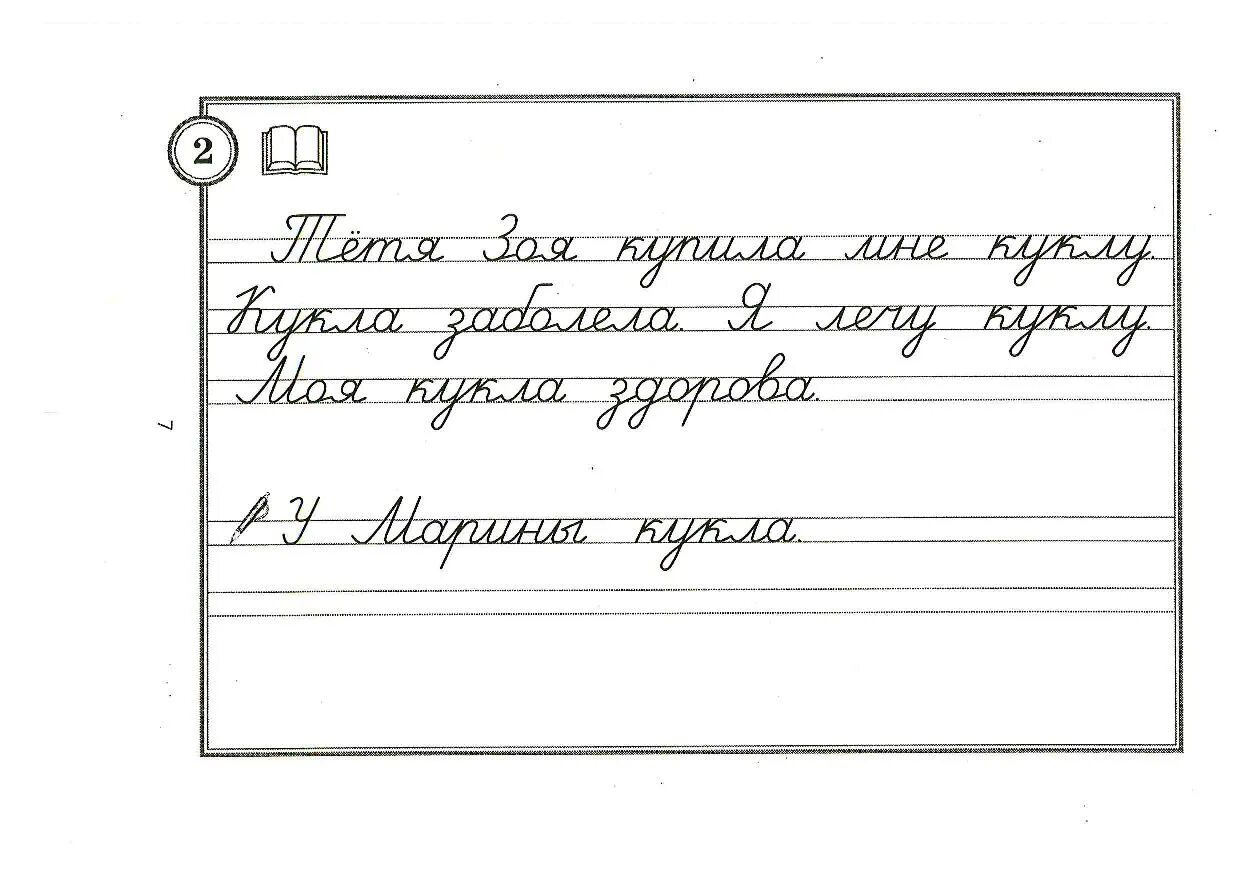 2
Тётя Зоя купила мне куклу.
Кукла заболела. Я лечу куклу.
Моя кукла здорова.
7
У Марины кукла.